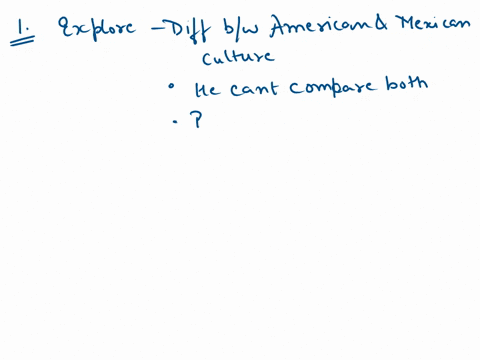 1. Explore - Diff b/w American & Mexican
culture
• He cant compare both
• P